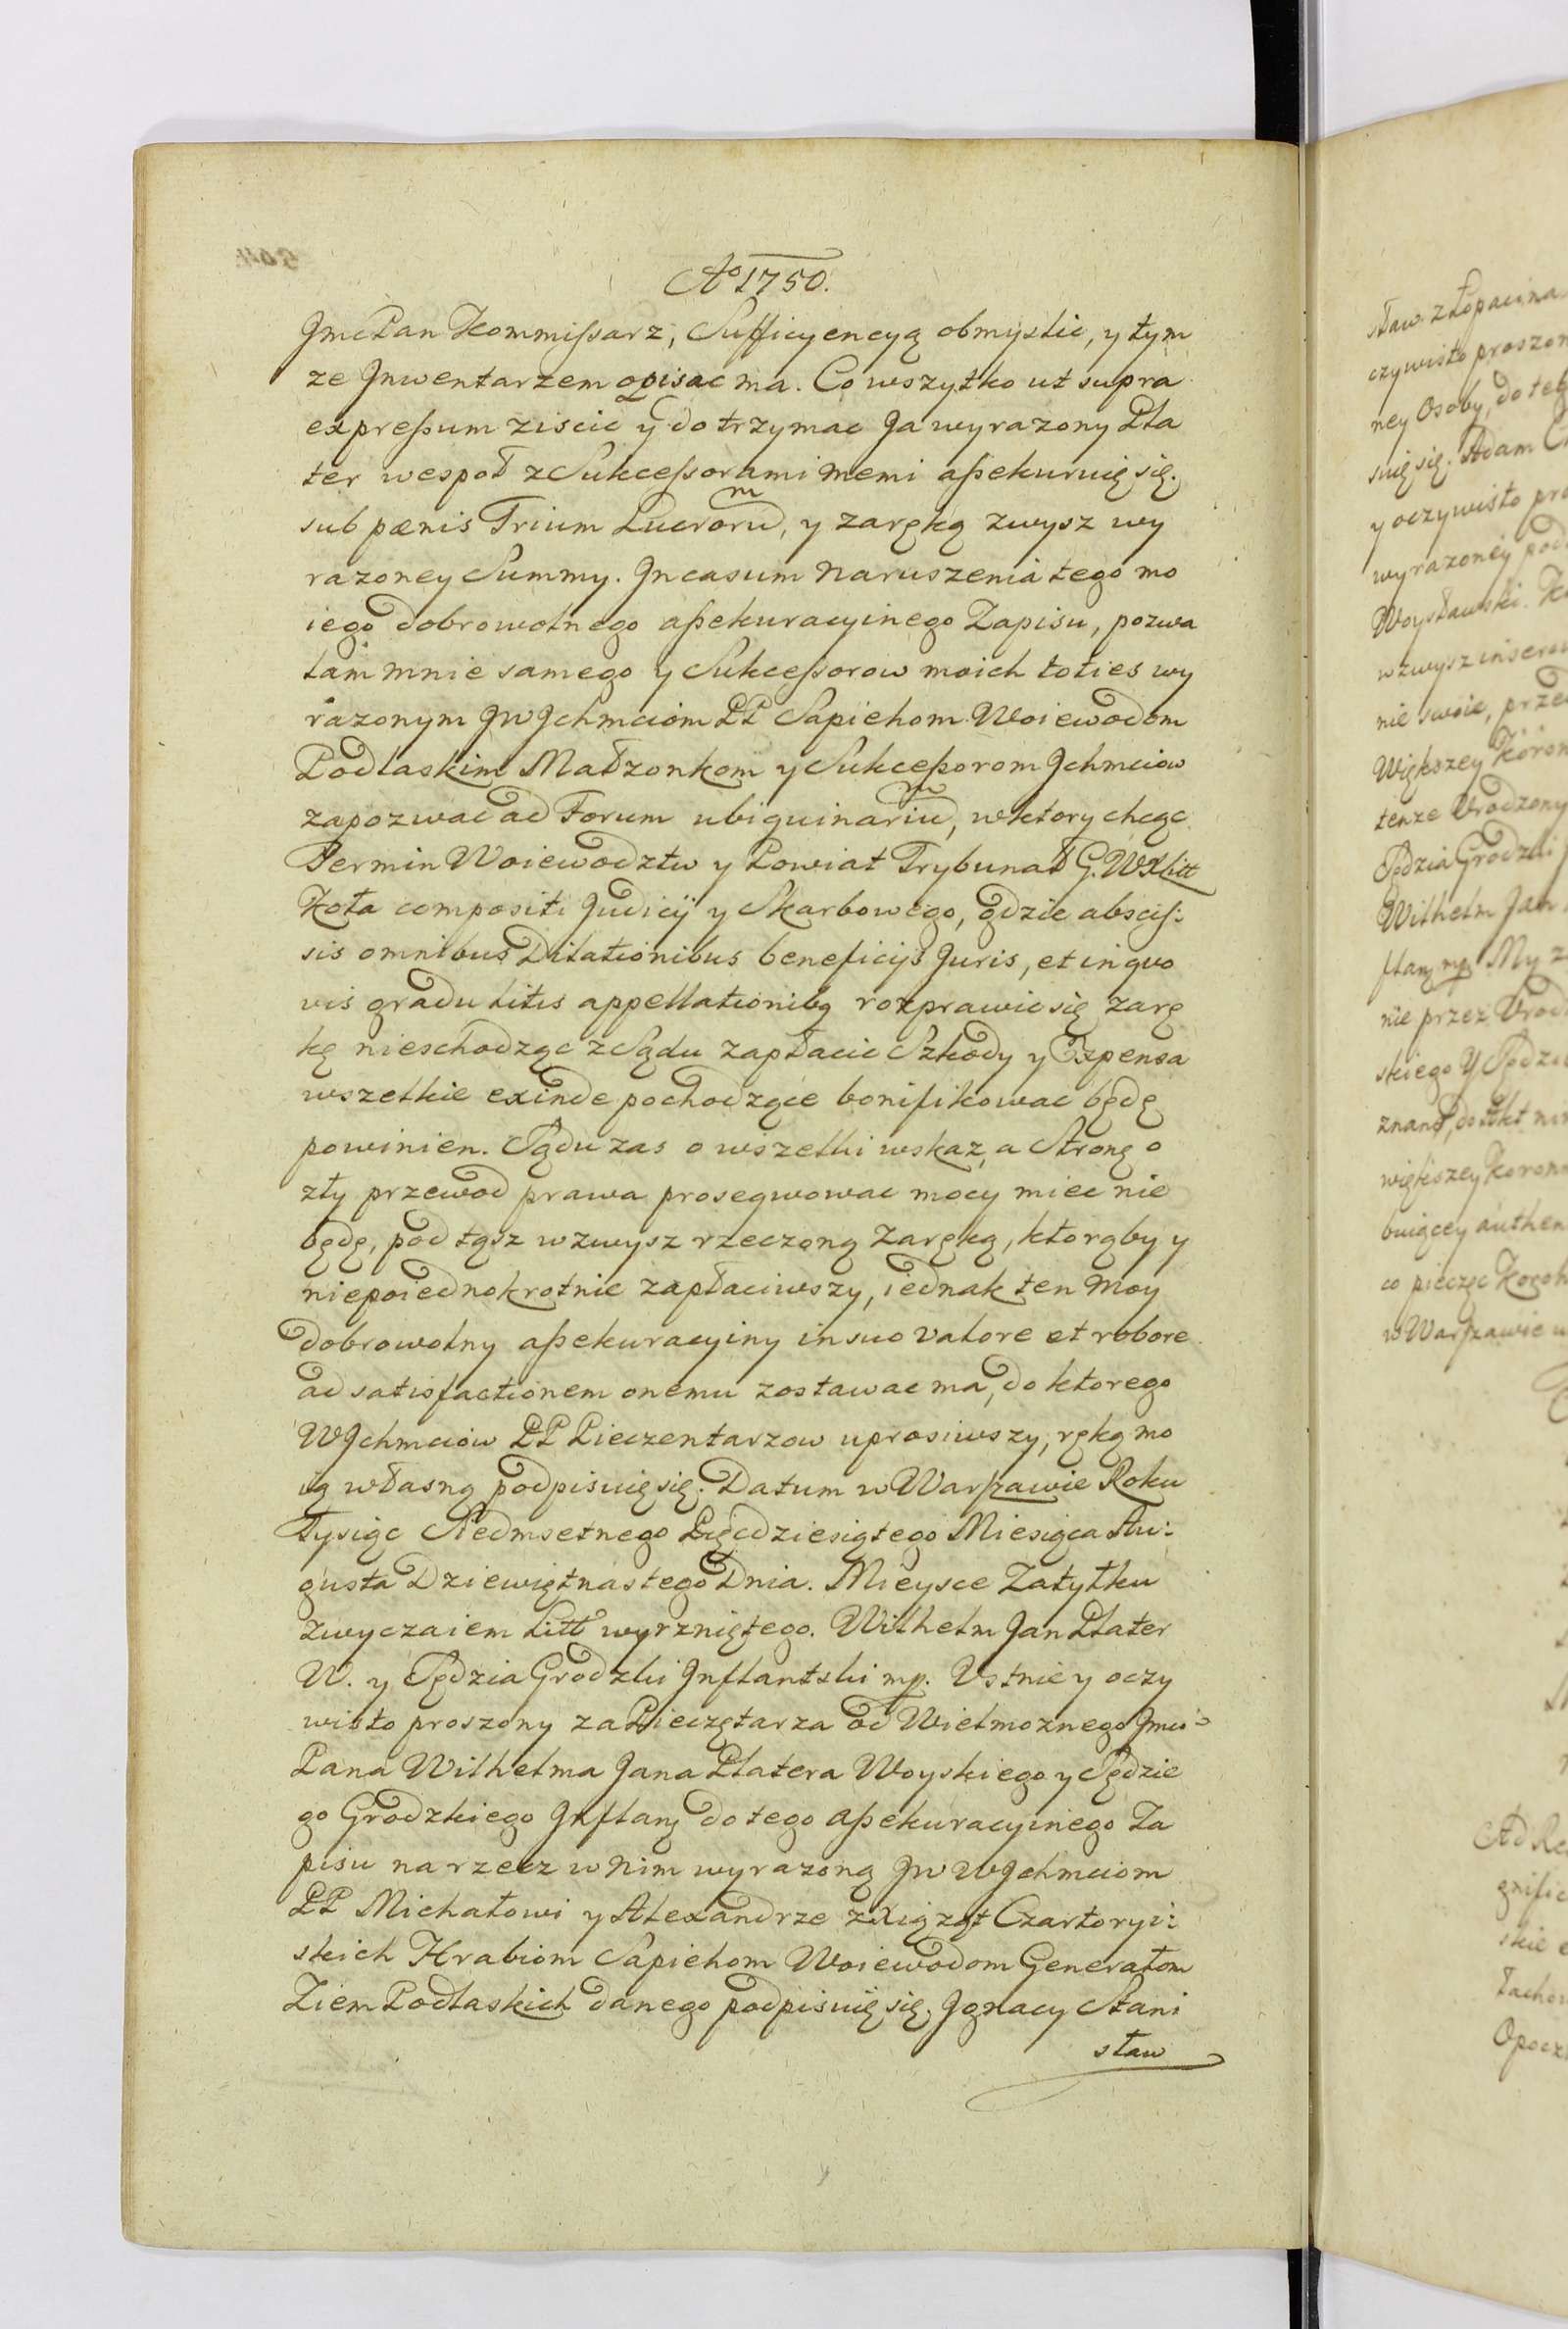 Ao 1750.
JmcPan Kommissarz, Sufficyencyą obmyslic, y tym
ze Jnwentarzem opisac ma. Co wszytko ut supra
expressum ziscic y dotrzymac Ja wyrazony Pla
ter wespoł z Sukcessorami memi assekuruię się.
sub pænis Trium Lucrorum, y zaręką zwysz wy
razoney Summy. Jn casum naruszenia tego mo
iego dobrowolnego assekuracyinego Zapisu, pozwa
lam mnie samego y Sukcessorow moich toties wy
razonym JW Jchmciom PP Sapiehom Woiewodom
Podlaskim Małzonkom y Sukcessorom Jchmciow
zapozwac ad Forum ubiquinarium, w ktory chcąc
Termin Woiewodztw y Powiat Trybunał G. WXLitt
Koła compositi Judicij y Skarbowego, gdzie absciss:
sis omnibus Dilationibus beneficijs Juris, et in quo
vis gradu litis appellationibq rozprawic się zarę
kę nieschodząc z Sądu zapłacic Szkody y Expensa
wszelkie exinde pochodzące bonifikowac będę
powinien. Sądu zas o wszelki wskaz, a Stronę o
zły przewod prawa prosequowac mocy miec nie
będę, pod tąsz wzwysz rzeczoną zaręką, ktorąby y
niepoiednokrotnie zapłaciwszy, iednak ten moy
dobrowolny assekuracyiny in suo valore et robore
ad satisfactionem onemu zostawac ma, do ktorego
WJchmciow PP Pieczentarzow uprosiwszy, ręką mo
ią własną podpisuię się. Datum w Warszawie Roku
Tysiąc Siedmsetnego Pięcdziesiątego Miesiąca Au:
gusta Dziewiętnastego Dnia. Mieysce Zatyłku
zwyczaiem Litt wyrzniętego. Wilhelm Jan Plater
W. y Sędzia Grodzki Jnflantski mp. Ustnie y oczy
wisto proszony za Pieczętarza od Wielmoznego Jmci
Pana Wilhelma Jana Platera Woyskiego y Sędzie
go Grodzkiego Jnflanţ do tego assekuracyinego Za
pisu na rzecz w nim wyrazoną JW WJchmciom
PP Michałowi y Alexandrze z Xiąząt Czartoryi:
skich Hrabiom Sapiehom Woiewodom Generałom
Ziem Podlaskich danego podpisuię się. Jgnacy Stani
sław
sław z Łopacina
czywisto proszon
ney Osoby, do teg
suię się. Adam
y oczywisto pro
wyrazoney pod
Woysławski.
wzwysz
nie swoie, przed
Większey Koron
tenze Urodzony
Sędzia Grodzki
Wilhelm Jan
flanţ mp. My z
nie przez Urod
skiego Y Sędzi
znane, do Akt nin
większey Koron
buiącey authen
co pieczęc
w Warszawie
Ad Re
gnific
skie